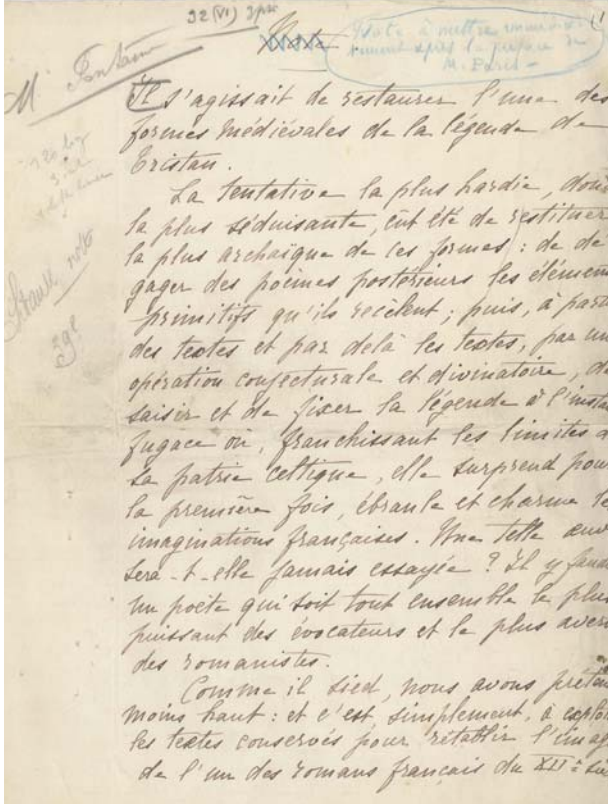 32 (VI)
Note
Note à mettre immédia-
tement après la préface de
M. Paris -
M
Il s'agissait de restaurer l'une des
formes médiévales de la légende de
Tristan.
La tentative la plus hardie, donc
la plus séduisante, eût été de restituer
la plus archaïque de ces formes : de dé
gager des poèmes postérieurs les élémen
primitifs qu'ils recèlent ; puis, à parti
des textes et par delà les textes, par un
opération conjecturale et divinatoire, de
saisir et de fixer la légende à l'insta
fugace où, franchissant les limites d
sa patrie celtique, elle surprend pour
la première fois, ébranle et charme le
imaginations françaises. Une telle œuv
sera-t-elle jamais essayée ? Il y faud
un poète qui soit tout ensemble le plus
puissant des évocateurs et le plus averti
des romanistes.
Comme il sied, nous avons préten
moins haut : et c'est, simplement, à exploi
les textes conservés pour rétablir l'imag
de l'un des romans français du XIIe siè